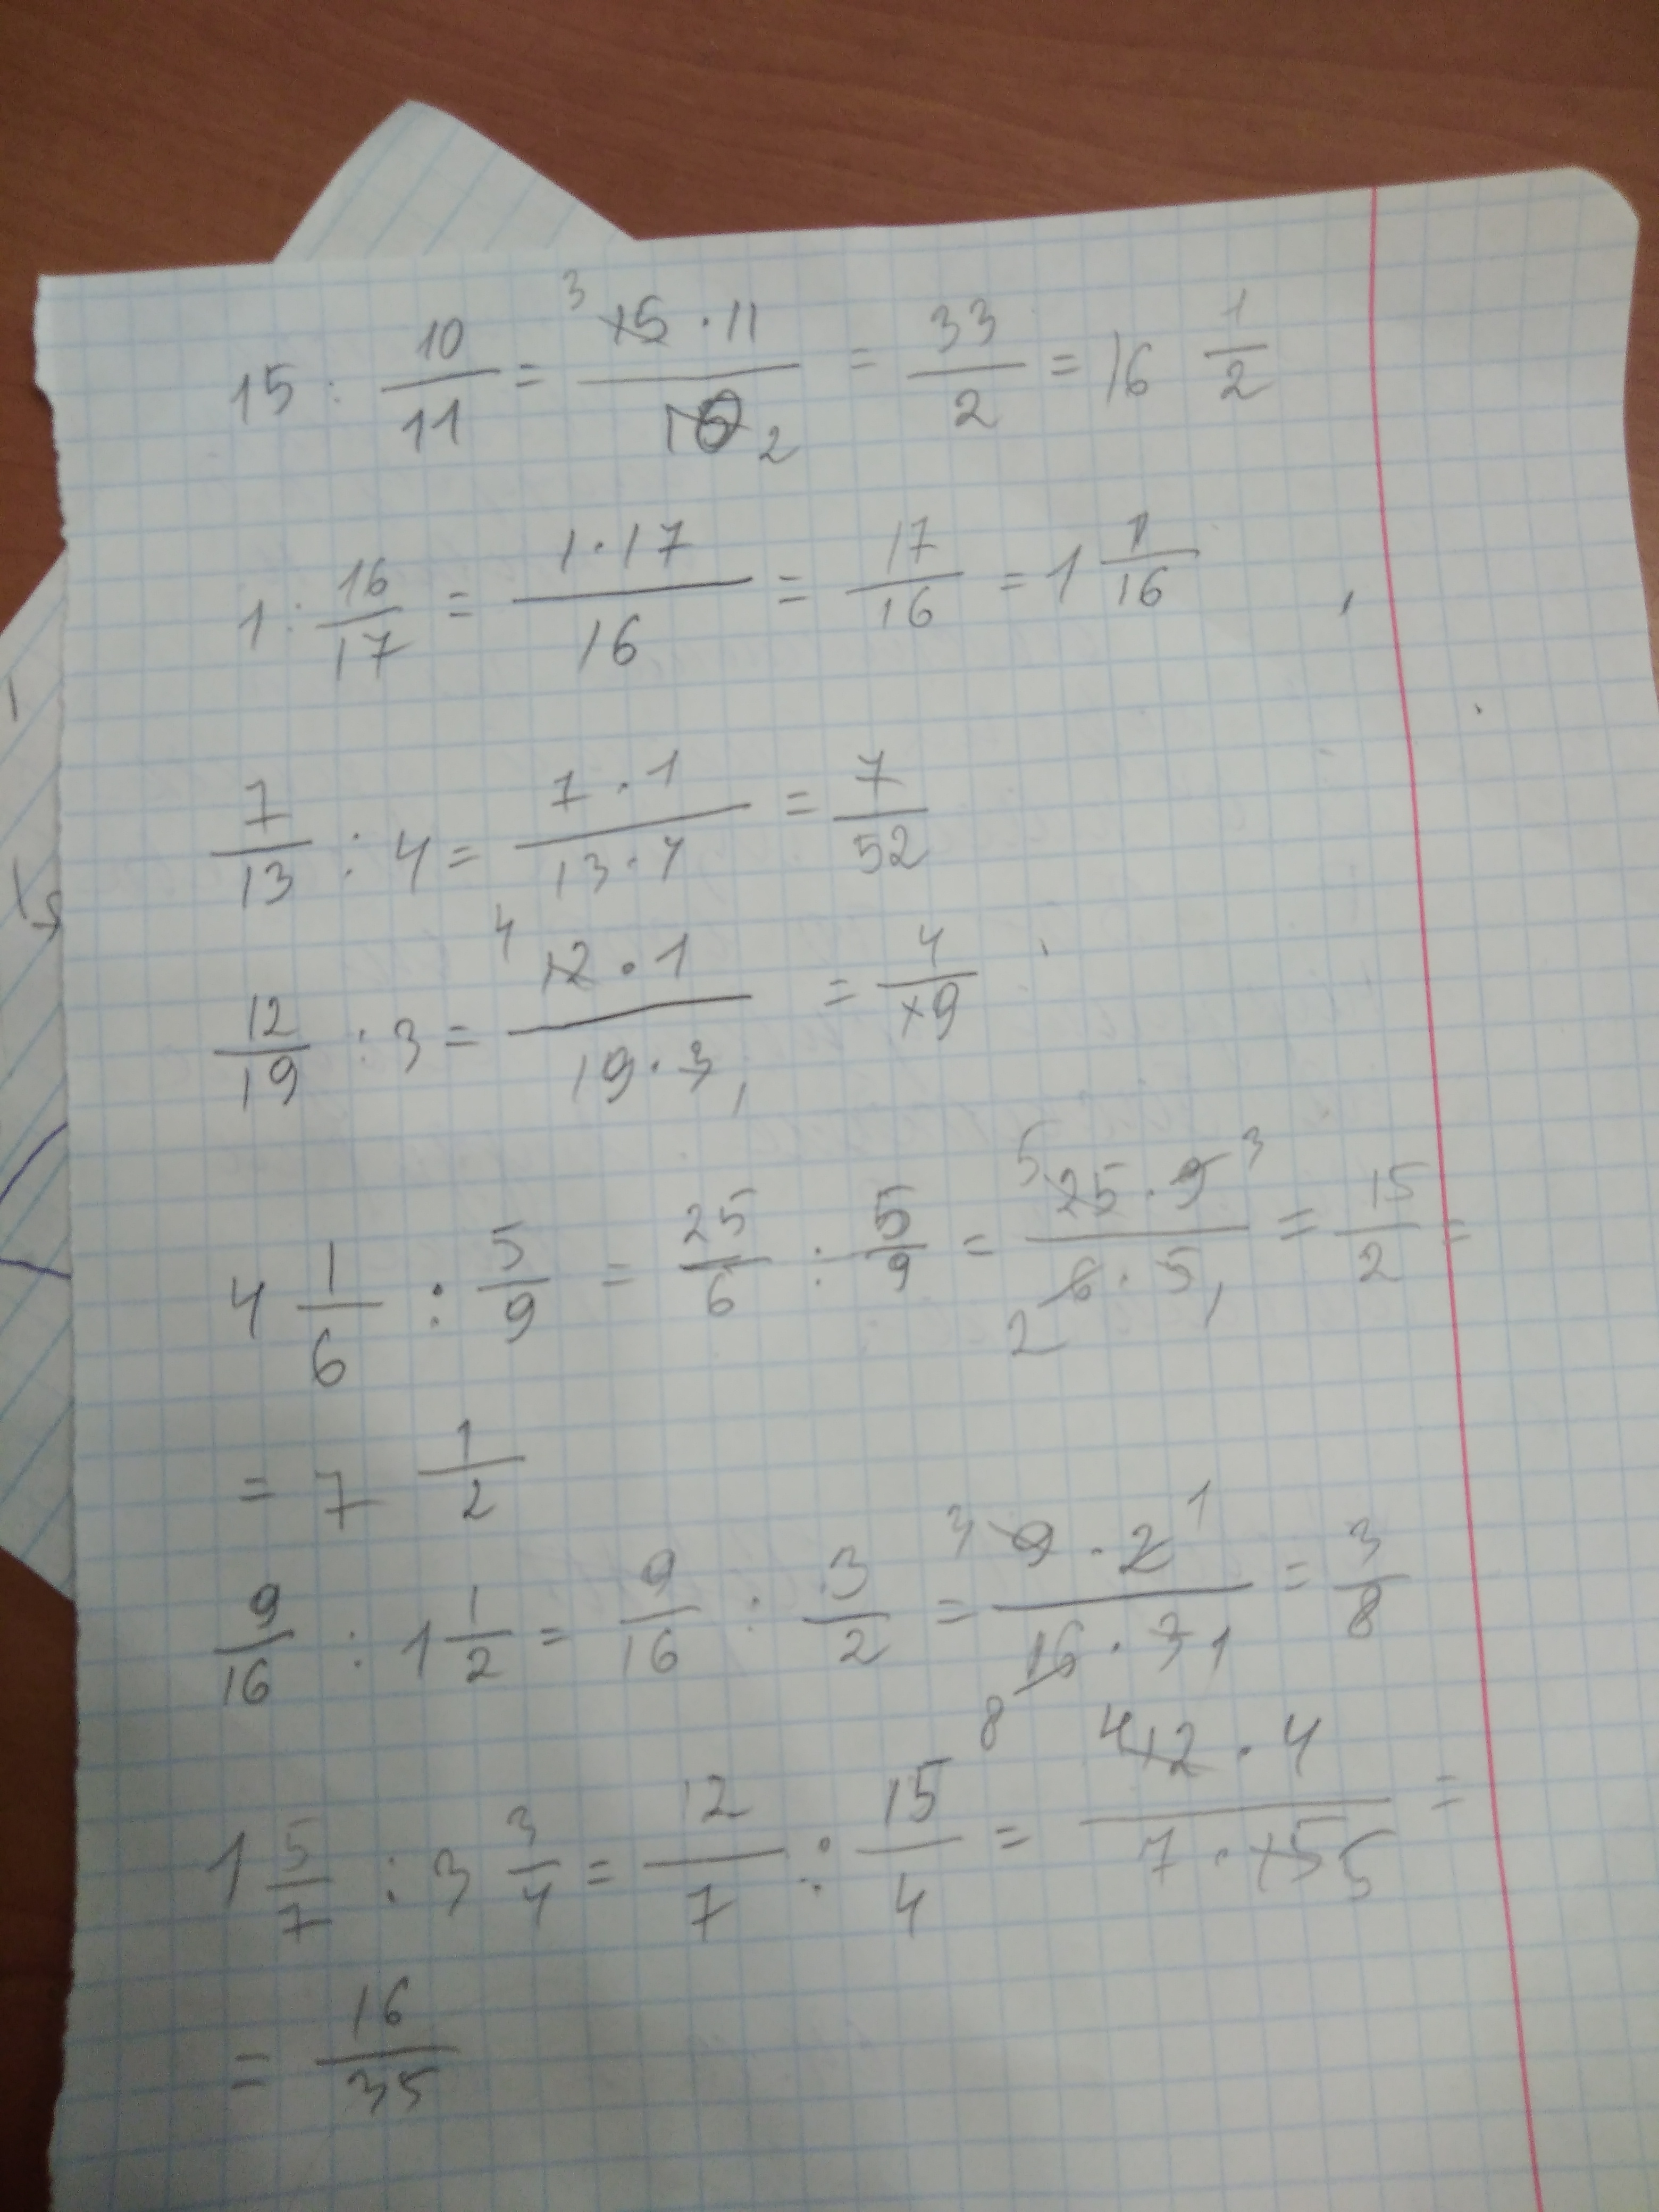 15 : 10/11 = 3 15 · 11 / 10 2 = 33/2 = 16 1/2
1 : 16/17 = 1 · 17 / 16 = 17/16 = 1 1/16
7/13 : 4 = 7 · 1 / 13 · 4 = 7/52
12/19 : 3 = 4 12 · 1 / 19 · 3 1 = 4/19
4 1/6 : 5/9 = 25/6 : 5/9 = 5 25 · 9 3 / 2 6 · 5 1 = 15/2 =
= 7 1/2
9/16 : 1 1/2 = 9/16 : 3/2 = 3 9 · 2 1 / 8 16 · 3 1 = 3/8
1 5/7 : 3 3/4 = 12/7 : 15/4 = 4 12 · 4 / 7 · 15 5 =
= 16/35